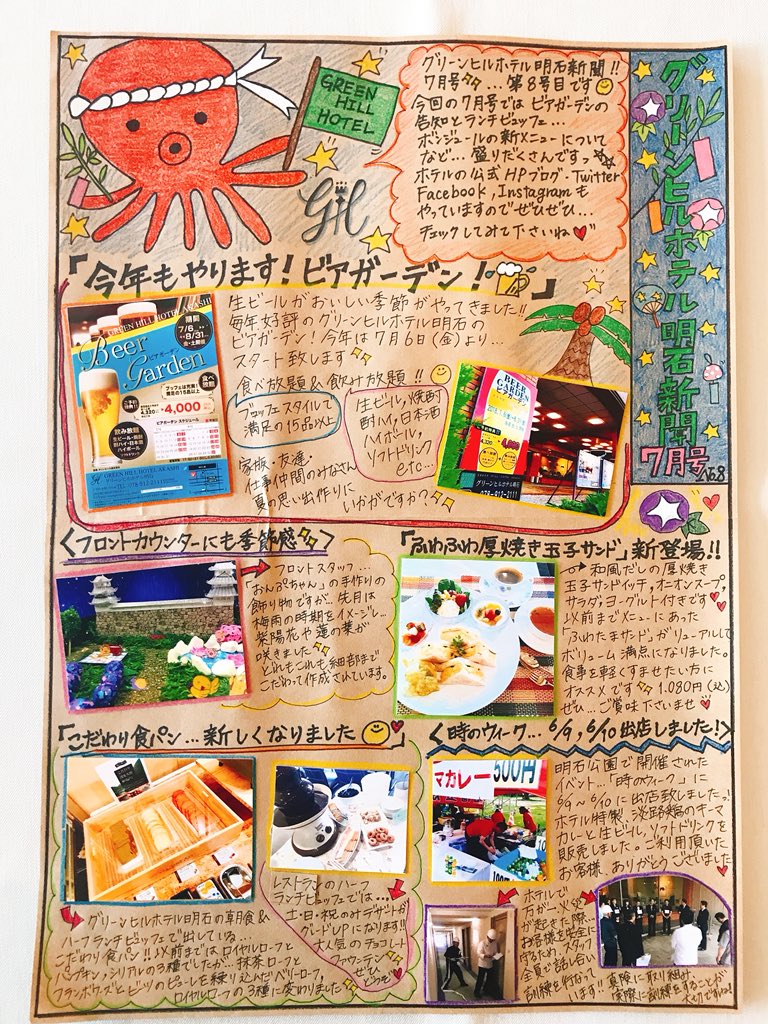 GREEN
HILL
HOTEL
GH
グリーンヒルホテル明石新聞!!
7月号 ... 第8号目です
今回の7月号では ビアガーデンの
告知とランチビュッフェ...
ボンジュールの新メニューについて
など... 盛りだくさんですっ
ホテルの公式HPブログ・Twitter
Facebook, Instagramも
やっていますのでぜひぜひ...
チェックしてみて下さいね
グリーンヒルホテル明石新聞
7月号
No.8
「今年もやります!ビアガーデン!」
生ビールがおいしい季節がやってきました!!
毎年好評のグリーンヒルホテル明石の
ビアガーデン!今年は7月6日(金)より...
スタート致します
食べ放題&飲み放題!!
ブッフェスタイルで
満足の15品以上
生ビール,焼酎
酎ハイ,日本酒
ハイボール,
ソフトドリンク
etc...
家族・友達・
仕事仲間のみなさん
夏の思い出作りに
いかがですか?
GREEN HILL HOTEL AKASHI
Beer
Garden
ビアガーデン
期間
7/6
8/31
食べ
放題
4,320
4,000
飲み放題
ビアガーデン スケジュール
GREEN HILL HOTEL AKASHI
BEER
GARDEN
4,320
グリーンヒルホテル明石
078-912-0111
<フロントカウンターにも季節感>
フロントスタッフ...
「おんぷちゃん」の手作りの
飾り物ですが... 先月は
梅雨の時期をイメージし...
紫陽花や蓮の葉が
咲きました
どれもこれも細部まで
こだわって作成されています。
「ふわふわ厚焼き玉子サンド」新登場!!
和風だしの厚焼き
玉子サンドイッチ,オニオンスープ,
サラダ,ヨーグルト付きです
以前までメニューにあった
「ふわたまサンド」がリニューアルして
ボリューム満点になりました。
食事を軽くすませたい方に
オススメです 1.080円(込)
ぜひ... ご賞味下さいませ
「こだわり食パン... 新しくなりました」
グリーンヒルホテル明石の朝食&
ハーフランチビュッフェで出している...
こだわり食パン!!以前まではロイヤルローフと
パンプキン,シリアルの3種でしたが、抹茶ローフと
フランボワーズとビーツのピューレを練り込んだベリーローフ,
ロイヤルローフの3種に変わりました
レストランのハーフ
ランチビュッフェでは...
土・日・祝のみデザートが
グレードUPになります!!
大人気のチョコレート
ファウンテン
ぜひ
どうぞ
<時のウィーク... 6/9,6/10出店しました!>
マカレー 500円
明石公園で開催された
イベント...「時のウィーク」に
6/9〜6/10に出店致しましたっ!
ホテル特製、淡路鶏のキーマ
カレーと生ビール,ソフトドリンクを
販売しました。ご利用頂いた
お客様、ありがとうございました
ホテルで
万が一、火災
が起きた際...
お客様を安全に
守るため、スタッフ
全員で話し合い
訓練を行なって
います!!真険に取り組み、
実際に訓練をすることが
大切ですね!